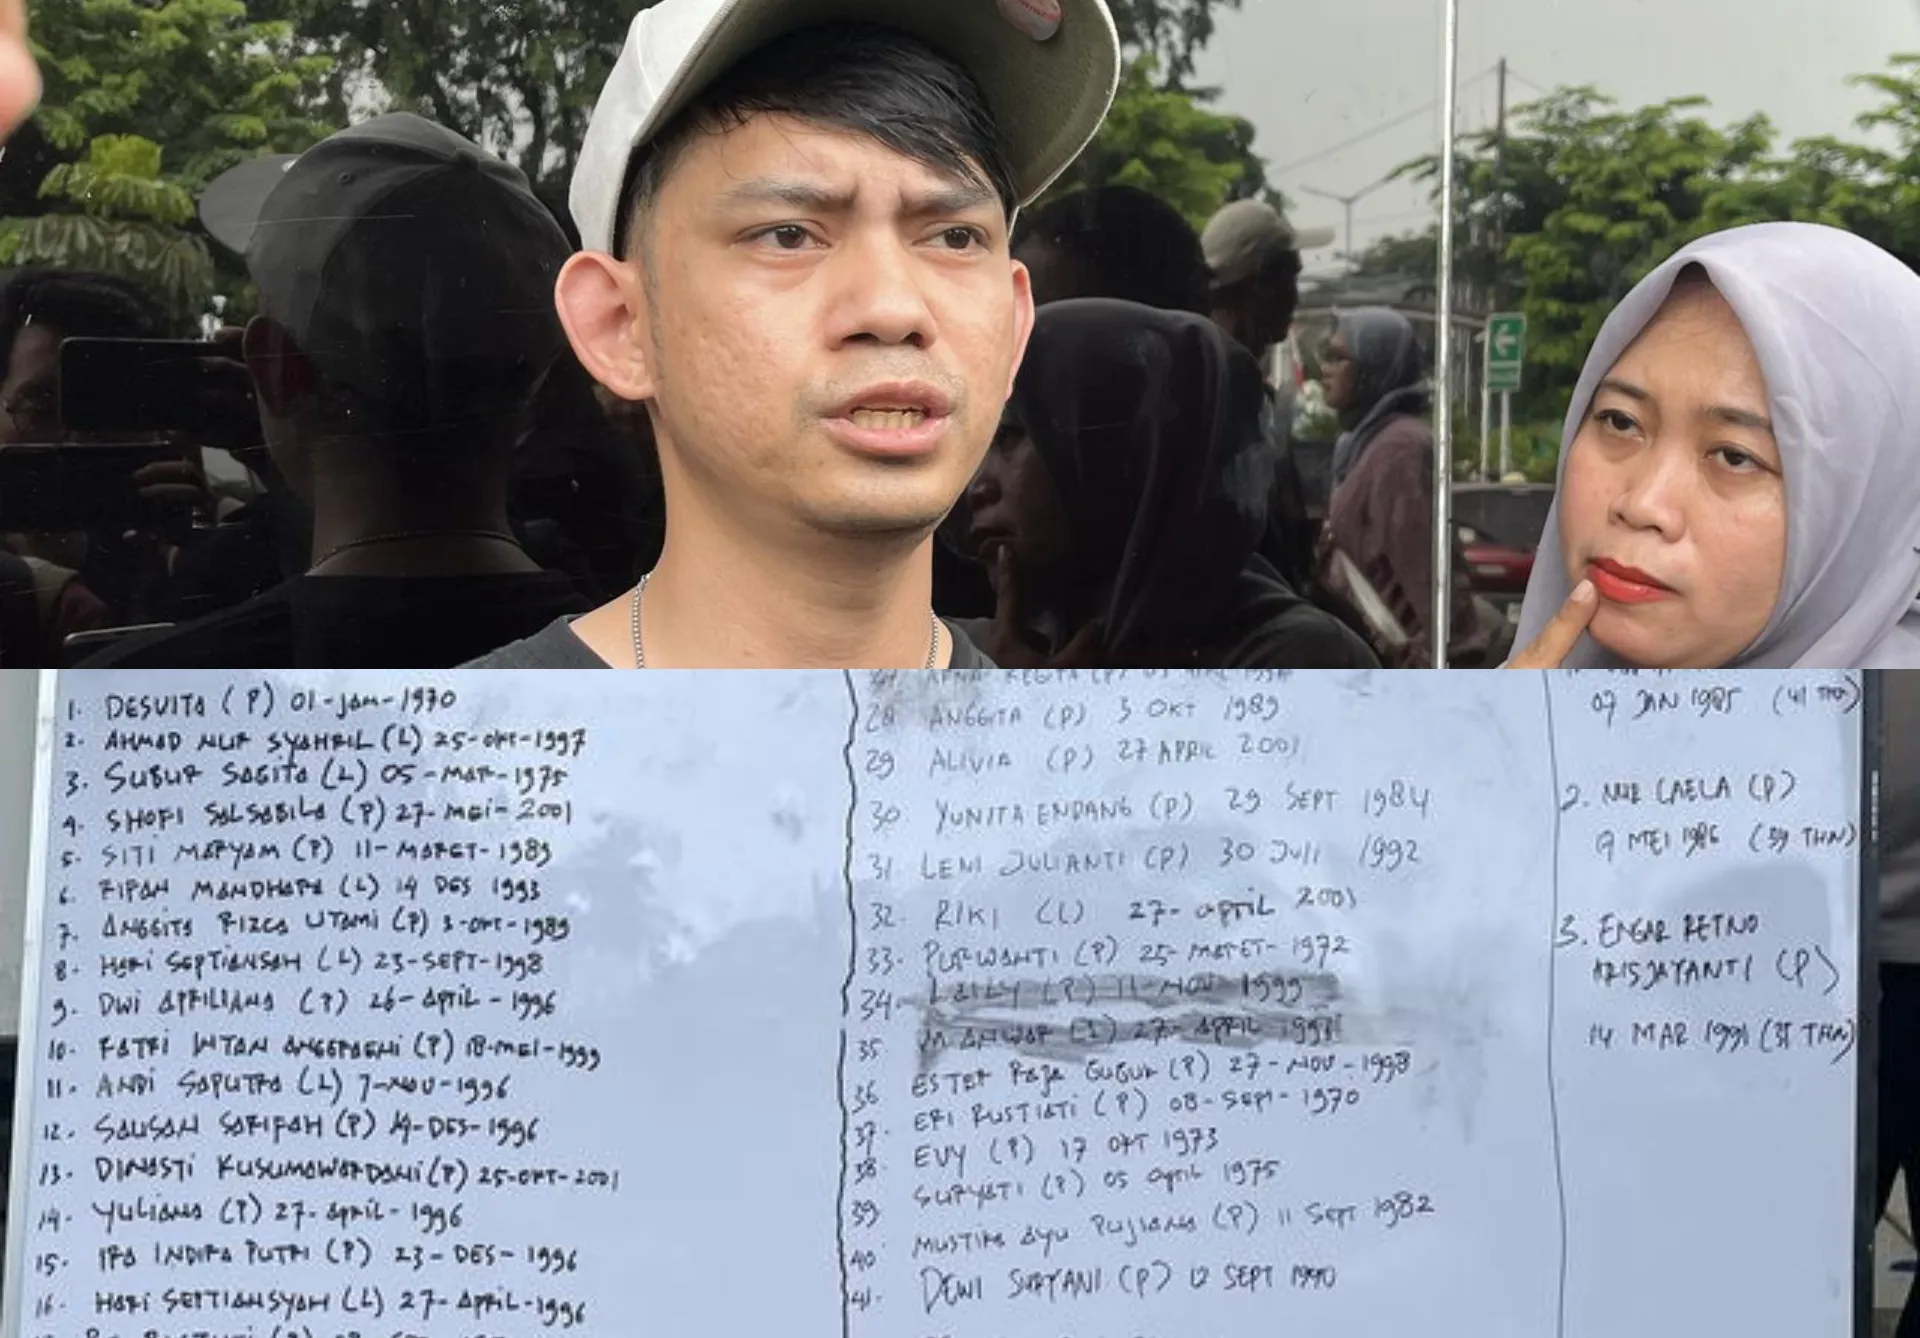 1. DESVITA (P) 01-JAN-1970
2. AHMAD NUR SYAHRIL (L) 25-OKT-1997
3. SUBUR SAGITA (L) 05-MAR-1975
4. SHOFI SALSABILA (P) 27-MEI-2001
5. SITI MARYAM (P) 11-MARET-1989
6. RIPAN MANDHARA (L) 14 DES 1993
7. ANGGITA RIZCA UTAMI (P) 3-OKT-1989
8. HARI SEPTIANSAH (L) 23-SEPT-1998
9. DWI APRILIANA (P) 26-APRIL-1996
10. FATRI INTAN ANGGRAENI (P) 18-MEI-1999
11. ANDI SAPUTRA (L) 7-NOV-1996
12. SAUSAN SARIFAH (P) 14-DES-1996
13. DINASTI KUSUMAWARDANI (P) 25-OKT-2001
14. YULIANA (P) 27-APRIL-1996
15. IRA INDIRA PUTRI (P) 23-DES-1996
16. HARI SEPTIANSYAH (L) 27-APRIL-1996
28 ANGGITA (P) 3 OKT 1989
29 ALIVIA (P) 27 APRIL 2001
30 YUNITA ENDANG (P) 29 SEPT 1984
31 LENI JULIANTI (P) 30 JULI 1992
32. RIKI (L) 27-APRIL 2001
33. PURWANTI (P) 25-MARET-1972
34. LAILY (P) 11-NOV 1999
35 M ANWAR (L) 27-APRIL 1998
36 ESTER RAJA GUGUK (P) 27-NOV-1998
37. ERI RUSTIATI (P) 08-SEPT-1970
38. EVY (P) 17 OKT 1973
39 SURYATI (P) 05 APRIL 1975
40 MUSTIKA AYU PUJIANA (P) 11 SEPT 1982
41. DEWI SURYANI (P) 12 SEPT 1990
07 JAN 1985 (41 THN)
2. NUR LAELA (P)
9 MEI 1986 (39 THN)
3. ENGAR RETNO
KRISJAYANTI (P)
14 MAR 1991 (35 THN)